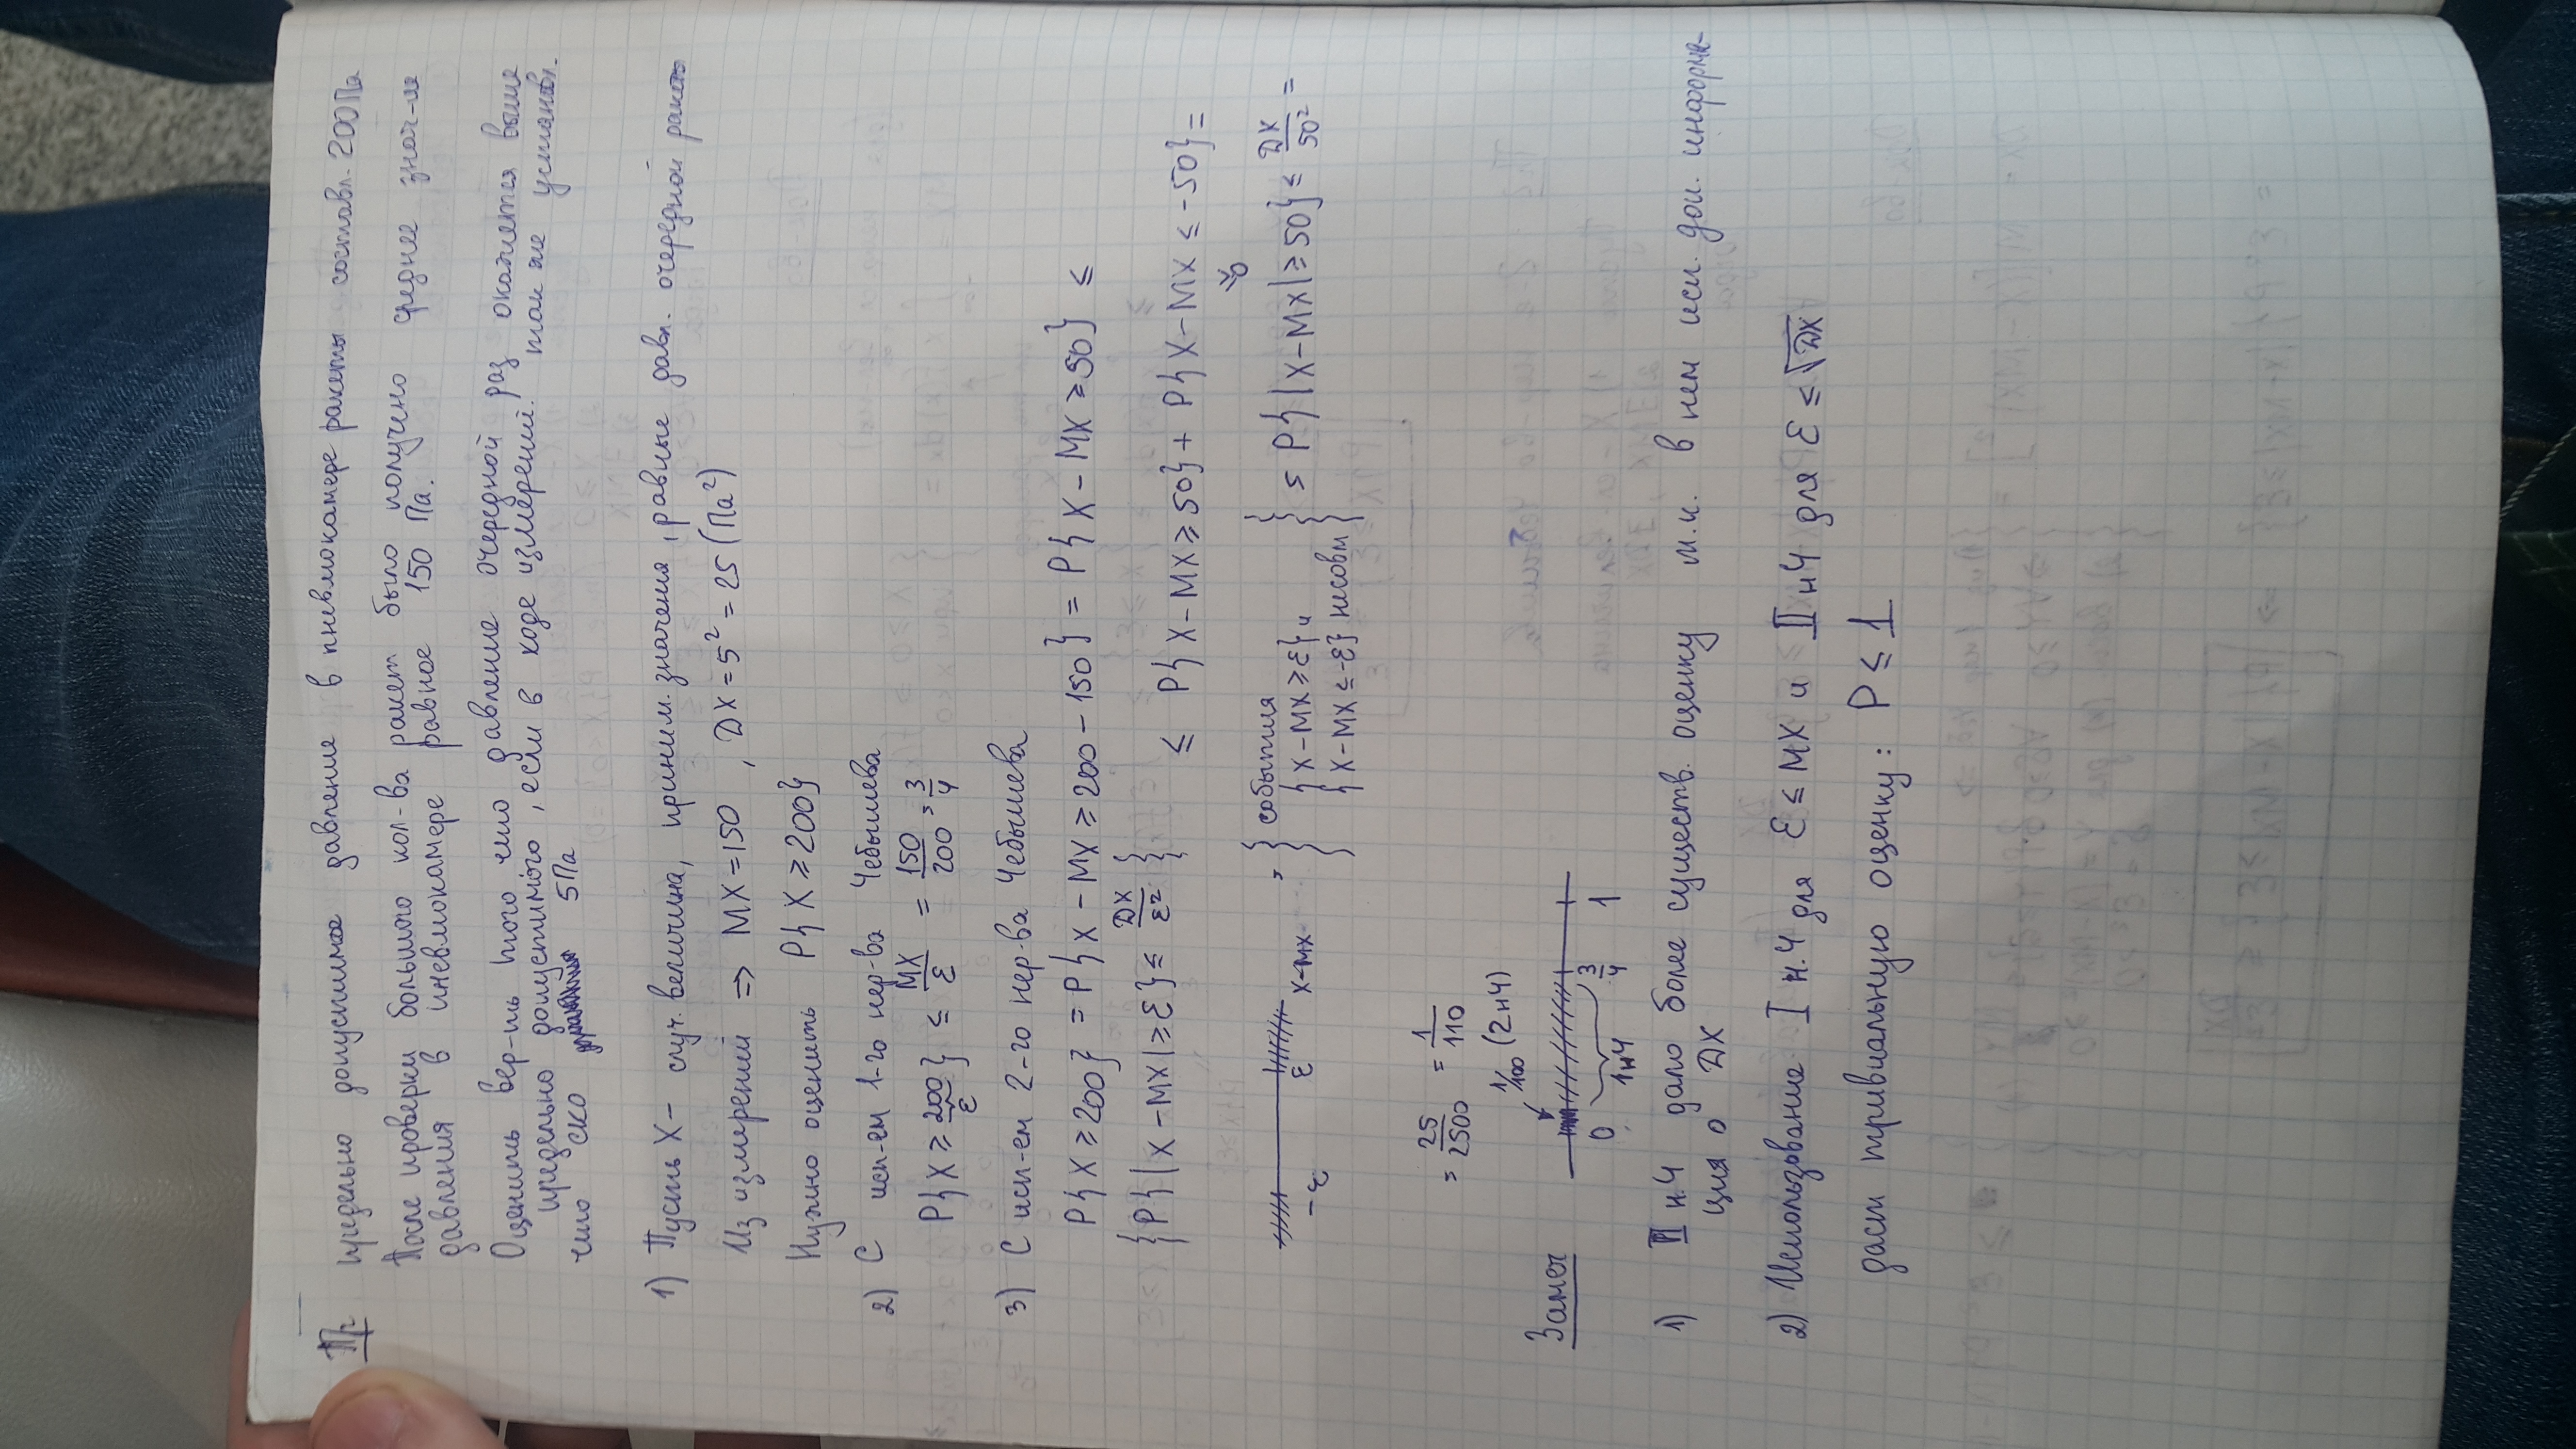 Пр предельно допустимое давление в пневмокамере ракеты составл. 200 Па
После проверки большого кол-ва ракет было получено среднее знач-ие
давления в пневмокамере равное 150 Па.
Оценить вер-ть того что давление очередной раз окажется выше
предельно допустимого, если в ходе измерений. так же установл.
что СКО 5Па
1) Пусть X – случ. величина, приним. значения, равные давл. очередной ракеты
Из измерений ⇒ MX = 150 , DX = 5² = 25 (Па²)
Нужно оценить P{X ≥ 200}
2) С исп-ем 1-го нер-ва Чебышева
P{X ≥ 200} ≤ MX/ε = 150/200 = 3/4
ε
3) С исп-ем 2-го нер-ва Чебышева
P{X ≥ 200} = P{X – MX ≥ 200 – 150} = P{X – MX ≥ 50} ≤
{P{|X – MX| ≥ ε} ≤ DX/ε²}
≤ P{X – MX ≥ 50} + P{X – MX ≤ -50} =
≥ 0
-ε ε X-MX
= { события {X – MX ≥ ε} и {X – MX ≤ -ε} несовм } = P{|X – MX| ≥ 50} ≤ DX/50² =
= 25/2500 = 1/110
1/100 (2нЧ)
Замеч
0 1нЧ 3/4 1
1) II н.Ч дало более существ. оценку т.к. в нем исп. доп. информа-
ция о DX
2) Использование I н.Ч для ε ≤ MX и II нЧ для ε ≤ √DX
даст тривиальную оценку: P ≤ 1